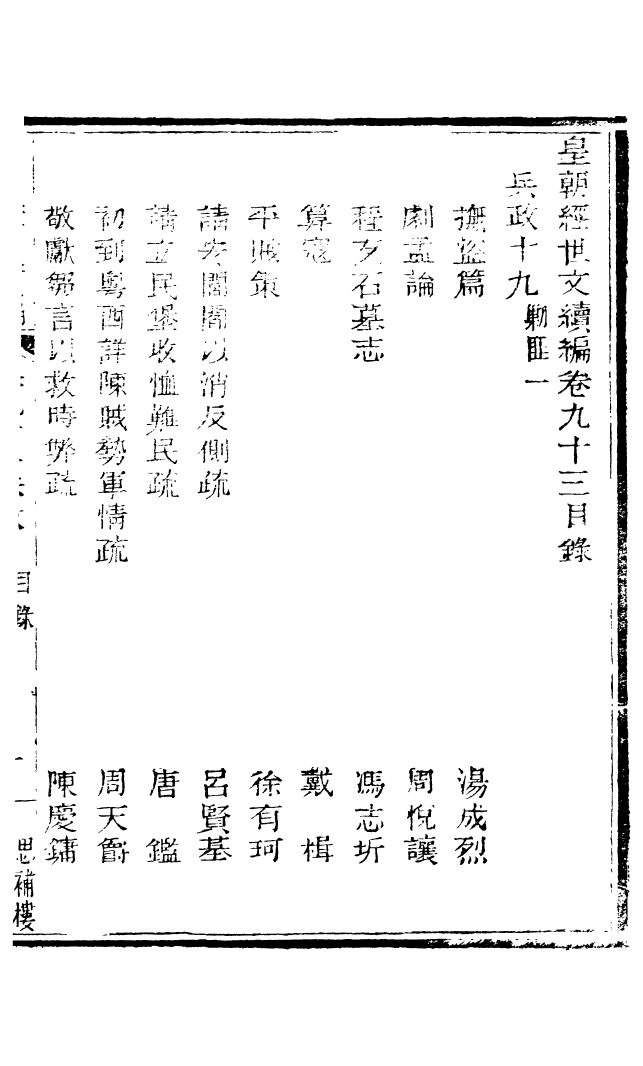 皇朝經世文續編卷九十三目錄
兵政十九 勦匪一
撫盜篇 湯成烈
劇孟論 周悅讓
程攴石墓志 馮志圻
算寇 戴楫
平賊策 徐有珂
請安閭閻以消反側疏 呂賢基
請立民堡收恤難民疏 唐鑑
初到粵西詳陳賊勢軍情疏 周天爵
敬獻芻言以救時弊疏 陳慶鏞
目錄 一 思補樓